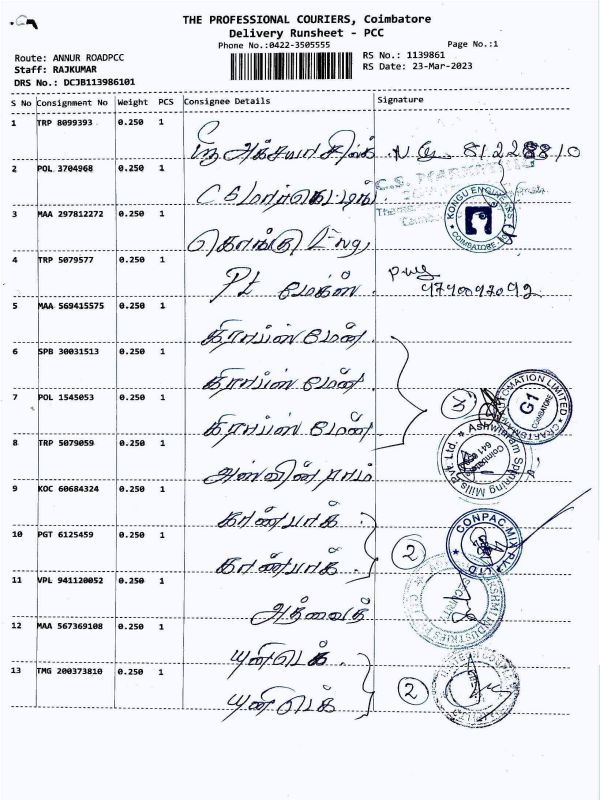 THE PROFESSIONAL COURIERS, Coimbatore
Delivery Runsheet - PCC
Phone No.:0422-3505555
Page No.:1
Route: ANNUR ROADPCC
RS No.: 1139861
Staff: RAJKUMAR
RS Date: 23-Mar-2023
DRS No.: DCJB113986101
S No Consignment No Weight PCS Consignee Details Signature
1 TRP 8099393 0.250 1
ஸ்ரீ அக்சயா
2 POL 3704968 0.250 1
C S மார்கெட்டிங்
C.S. MARKETING
3 MAA 297812272 0.250 1
கொங்கு Eng
KONGU ENGINEERS
COIMBATORE
4 TRP 5079577 0.250 1
5 MAA 569415575 0.250 1
கிராப்ஸ் மேன்
6 SPB 30031513 0.250 1
கிராப்ஸ் மேன்
7 POL 1545053 0.250 1
கிராப்ஸ் மேன்
G1
COIMBATORE
AUTOMATION LIMITED
8 TRP 5079059 0.250 1
அஸ்வின் ராம்
Ashwinram Spinning Mills Pvt. Ltd.
Coimbatore
9 KOC 60684324 0.250 1
கான்பாக்
10 PGT 6125459 0.250 1
கான்பாக்
2
CONPAC MIX PVT LTD
11 VPL 941120052 0.250 1
அத்வைத்
12 MAA 567369108 0.250 1
யுனிடெக்
13 TMG 200373810 0.250 1
யுனிடெக்
2